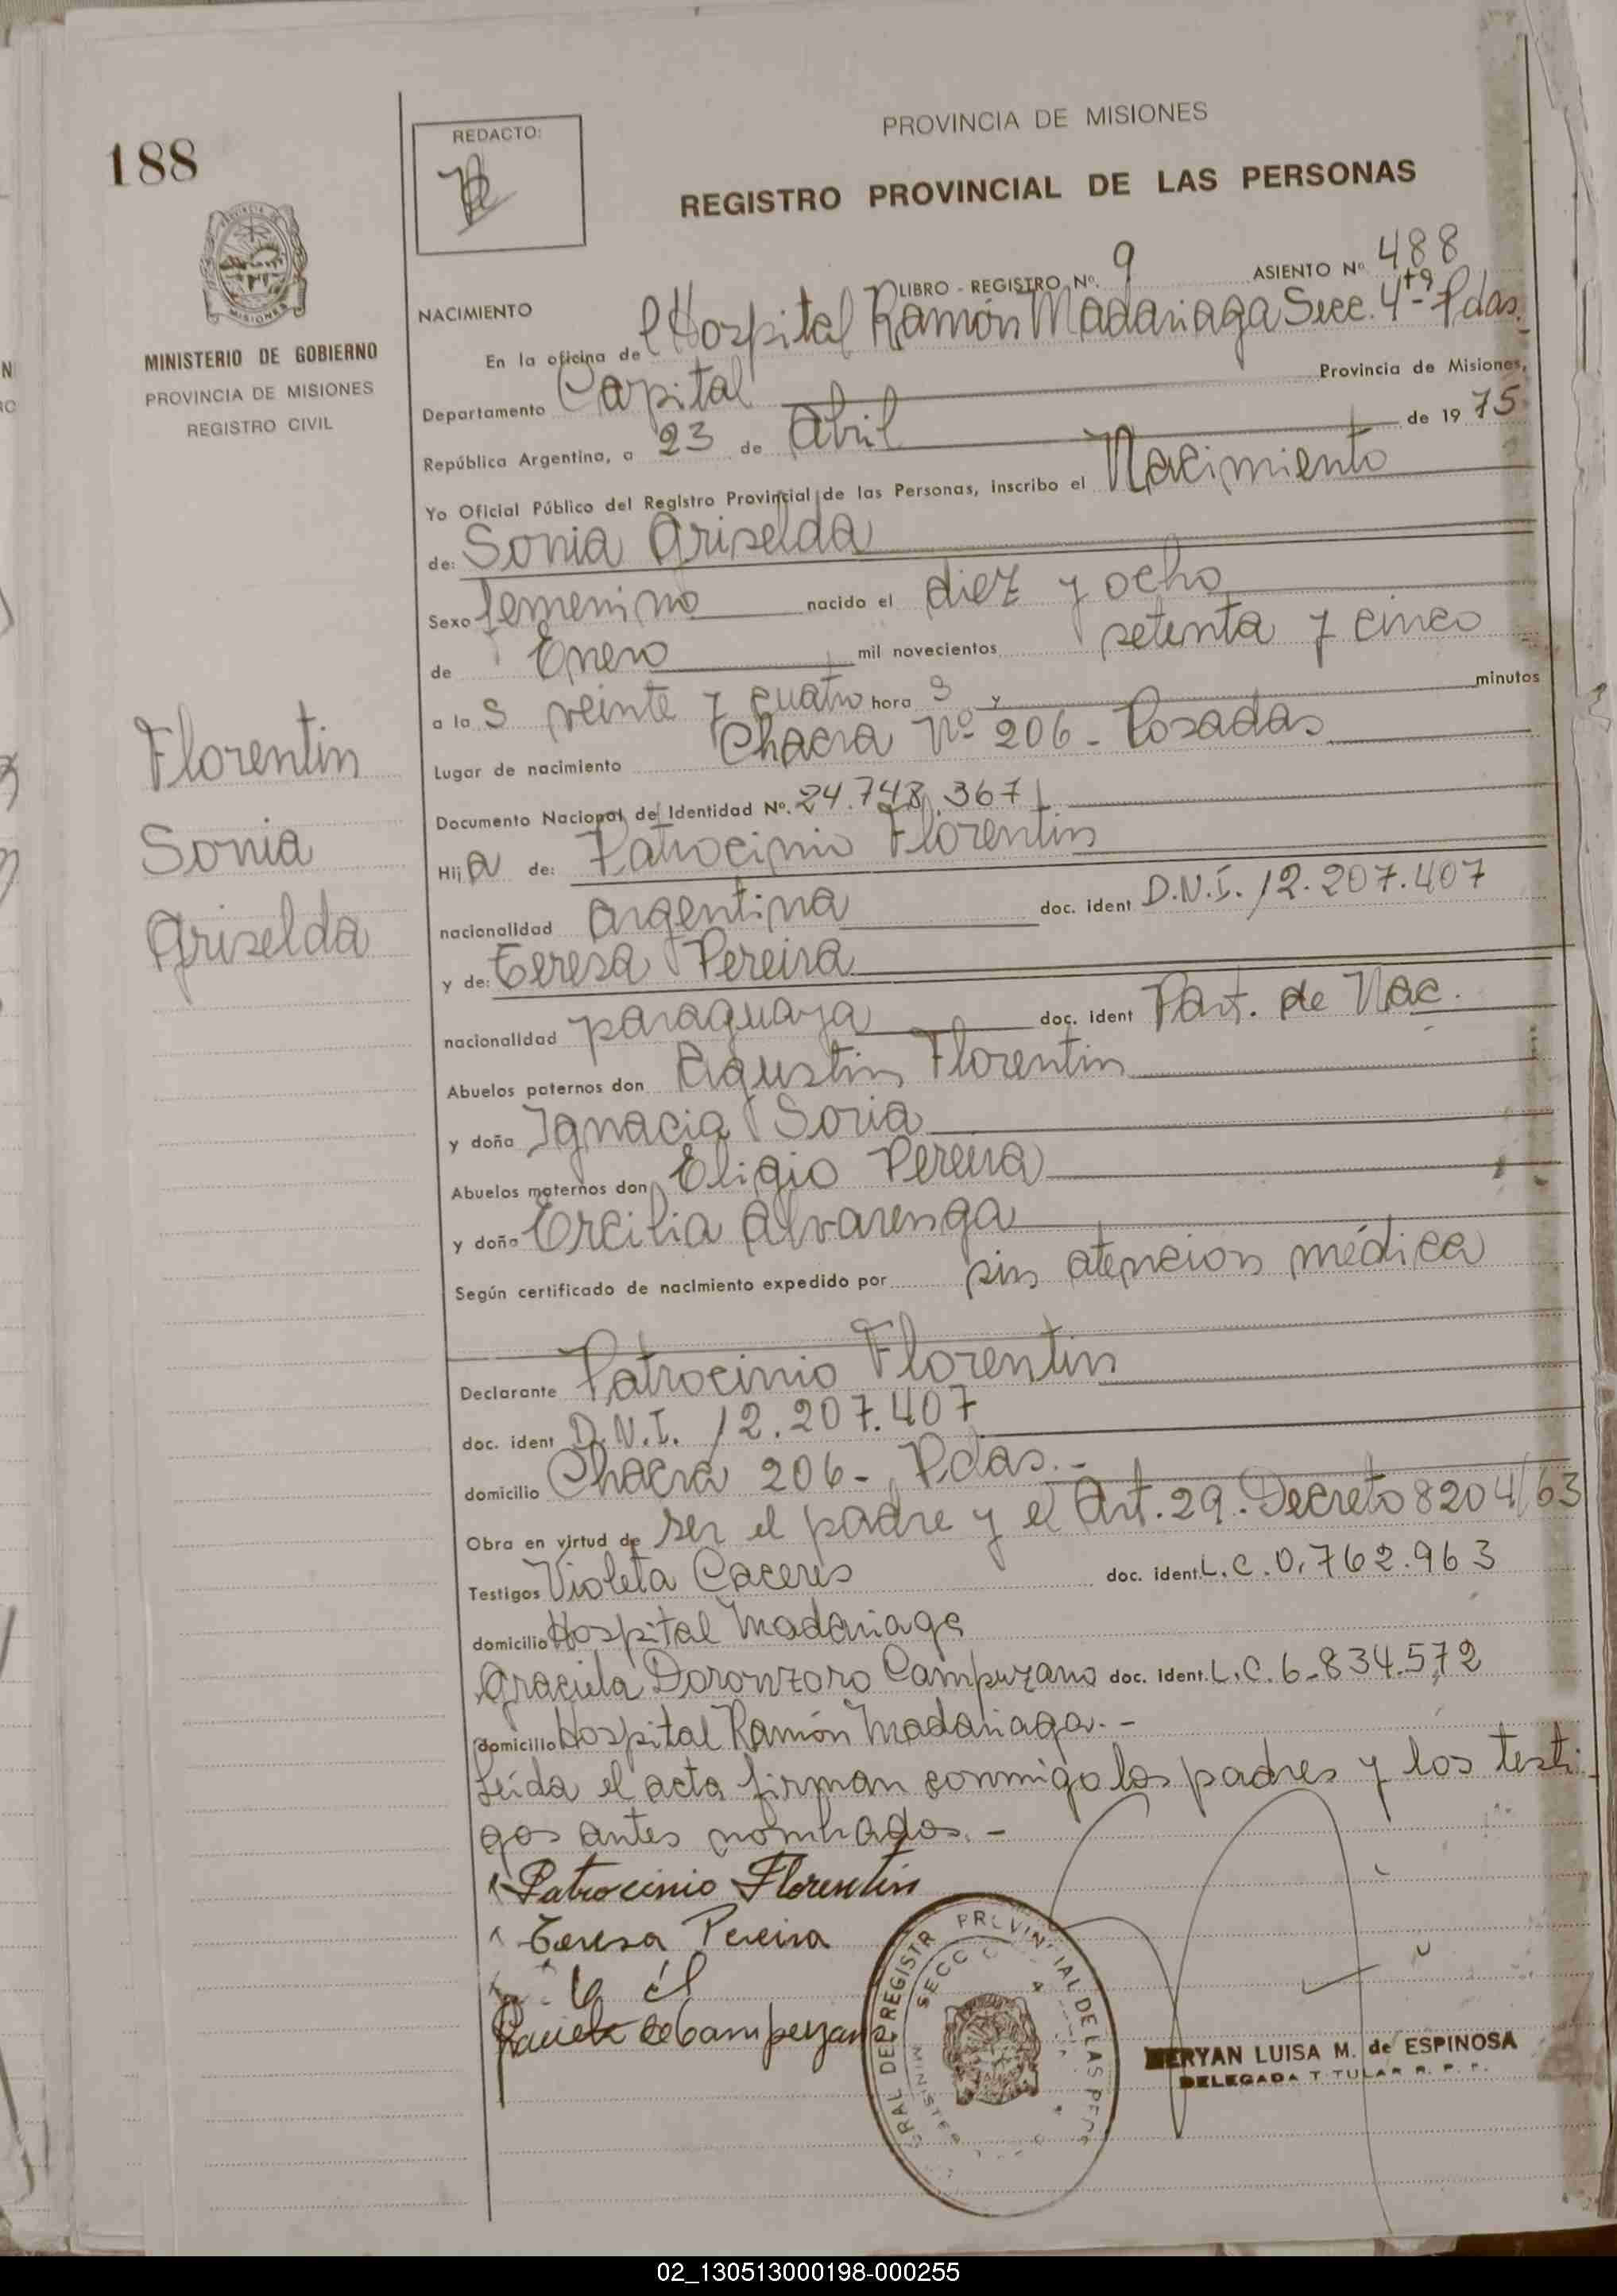 188
REDACTO:
PROVINCIA DE MISIONES
REGISTRO PROVINCIAL DE LAS PERSONAS
MINISTERIO DE GOBIERNO
PROVINCIA DE MISIONES
REGISTRO CIVIL
LIBRO - REGISTRO Nº. 9 ASIENTO Nº 488
NACIMIENTO
En la oficina de l Hospital Ramón Madariaga Secc. 4ta Pdas.
Departamento Capital Provincia de Misiones,
República Argentina, a 23 de Abril de 1975
Yo Oficial Público del Registro Provincial de las Personas, inscribo el Nacimiento
de: Sonia Griselda
Sexo femenino nacido el diez y ocho
de Enero mil novecientos setenta y cinco
a la s veinte y cuatro hora s y minutos
Lugar de nacimiento Chacra Nº 206 - Posadas
Documento Nacional de Identidad Nº. 24.748.367
Florentin
Sonia
Griselda
Hij a de: Patrocinio Florentin
nacionalidad Argentina doc. ident D.N.I. 12.207.407
y de: Teresa Pereira
nacionalidad paraguaya doc. ident Part. de Nac.
Abuelos paternos don Agustin Florentin
y doña Ignacia Soria
Abuelos maternos don Eligio Pereira
y doña Ercilia Alvarenga
Según certificado de nacimiento expedido por sin atencion médica
Declarante Patrocinio Florentin
doc. ident D.N.I. 12.207.407
domicilio Chacra 206 - Pdas. -
Obra en virtud de ser el padre y el Art. 29. Decreto 8204/63
Testigos Violeta Caceres doc. ident. L.C. 0.762.963
domicilio Hospital Madariaga
Graciela Doronzoro Campuzano doc. ident. L.C. 6.834.572
domicilio Hospital Ramón Madariaga. -
Leída el acta firman conmigo los padres y los testi
gos antes nombrados. -
Patrocinio Florentin
Teresa Pereira
LUISA M. de ESPINOSA
DELEGADA TITULAR R. P. P.
02_130513000198-000255